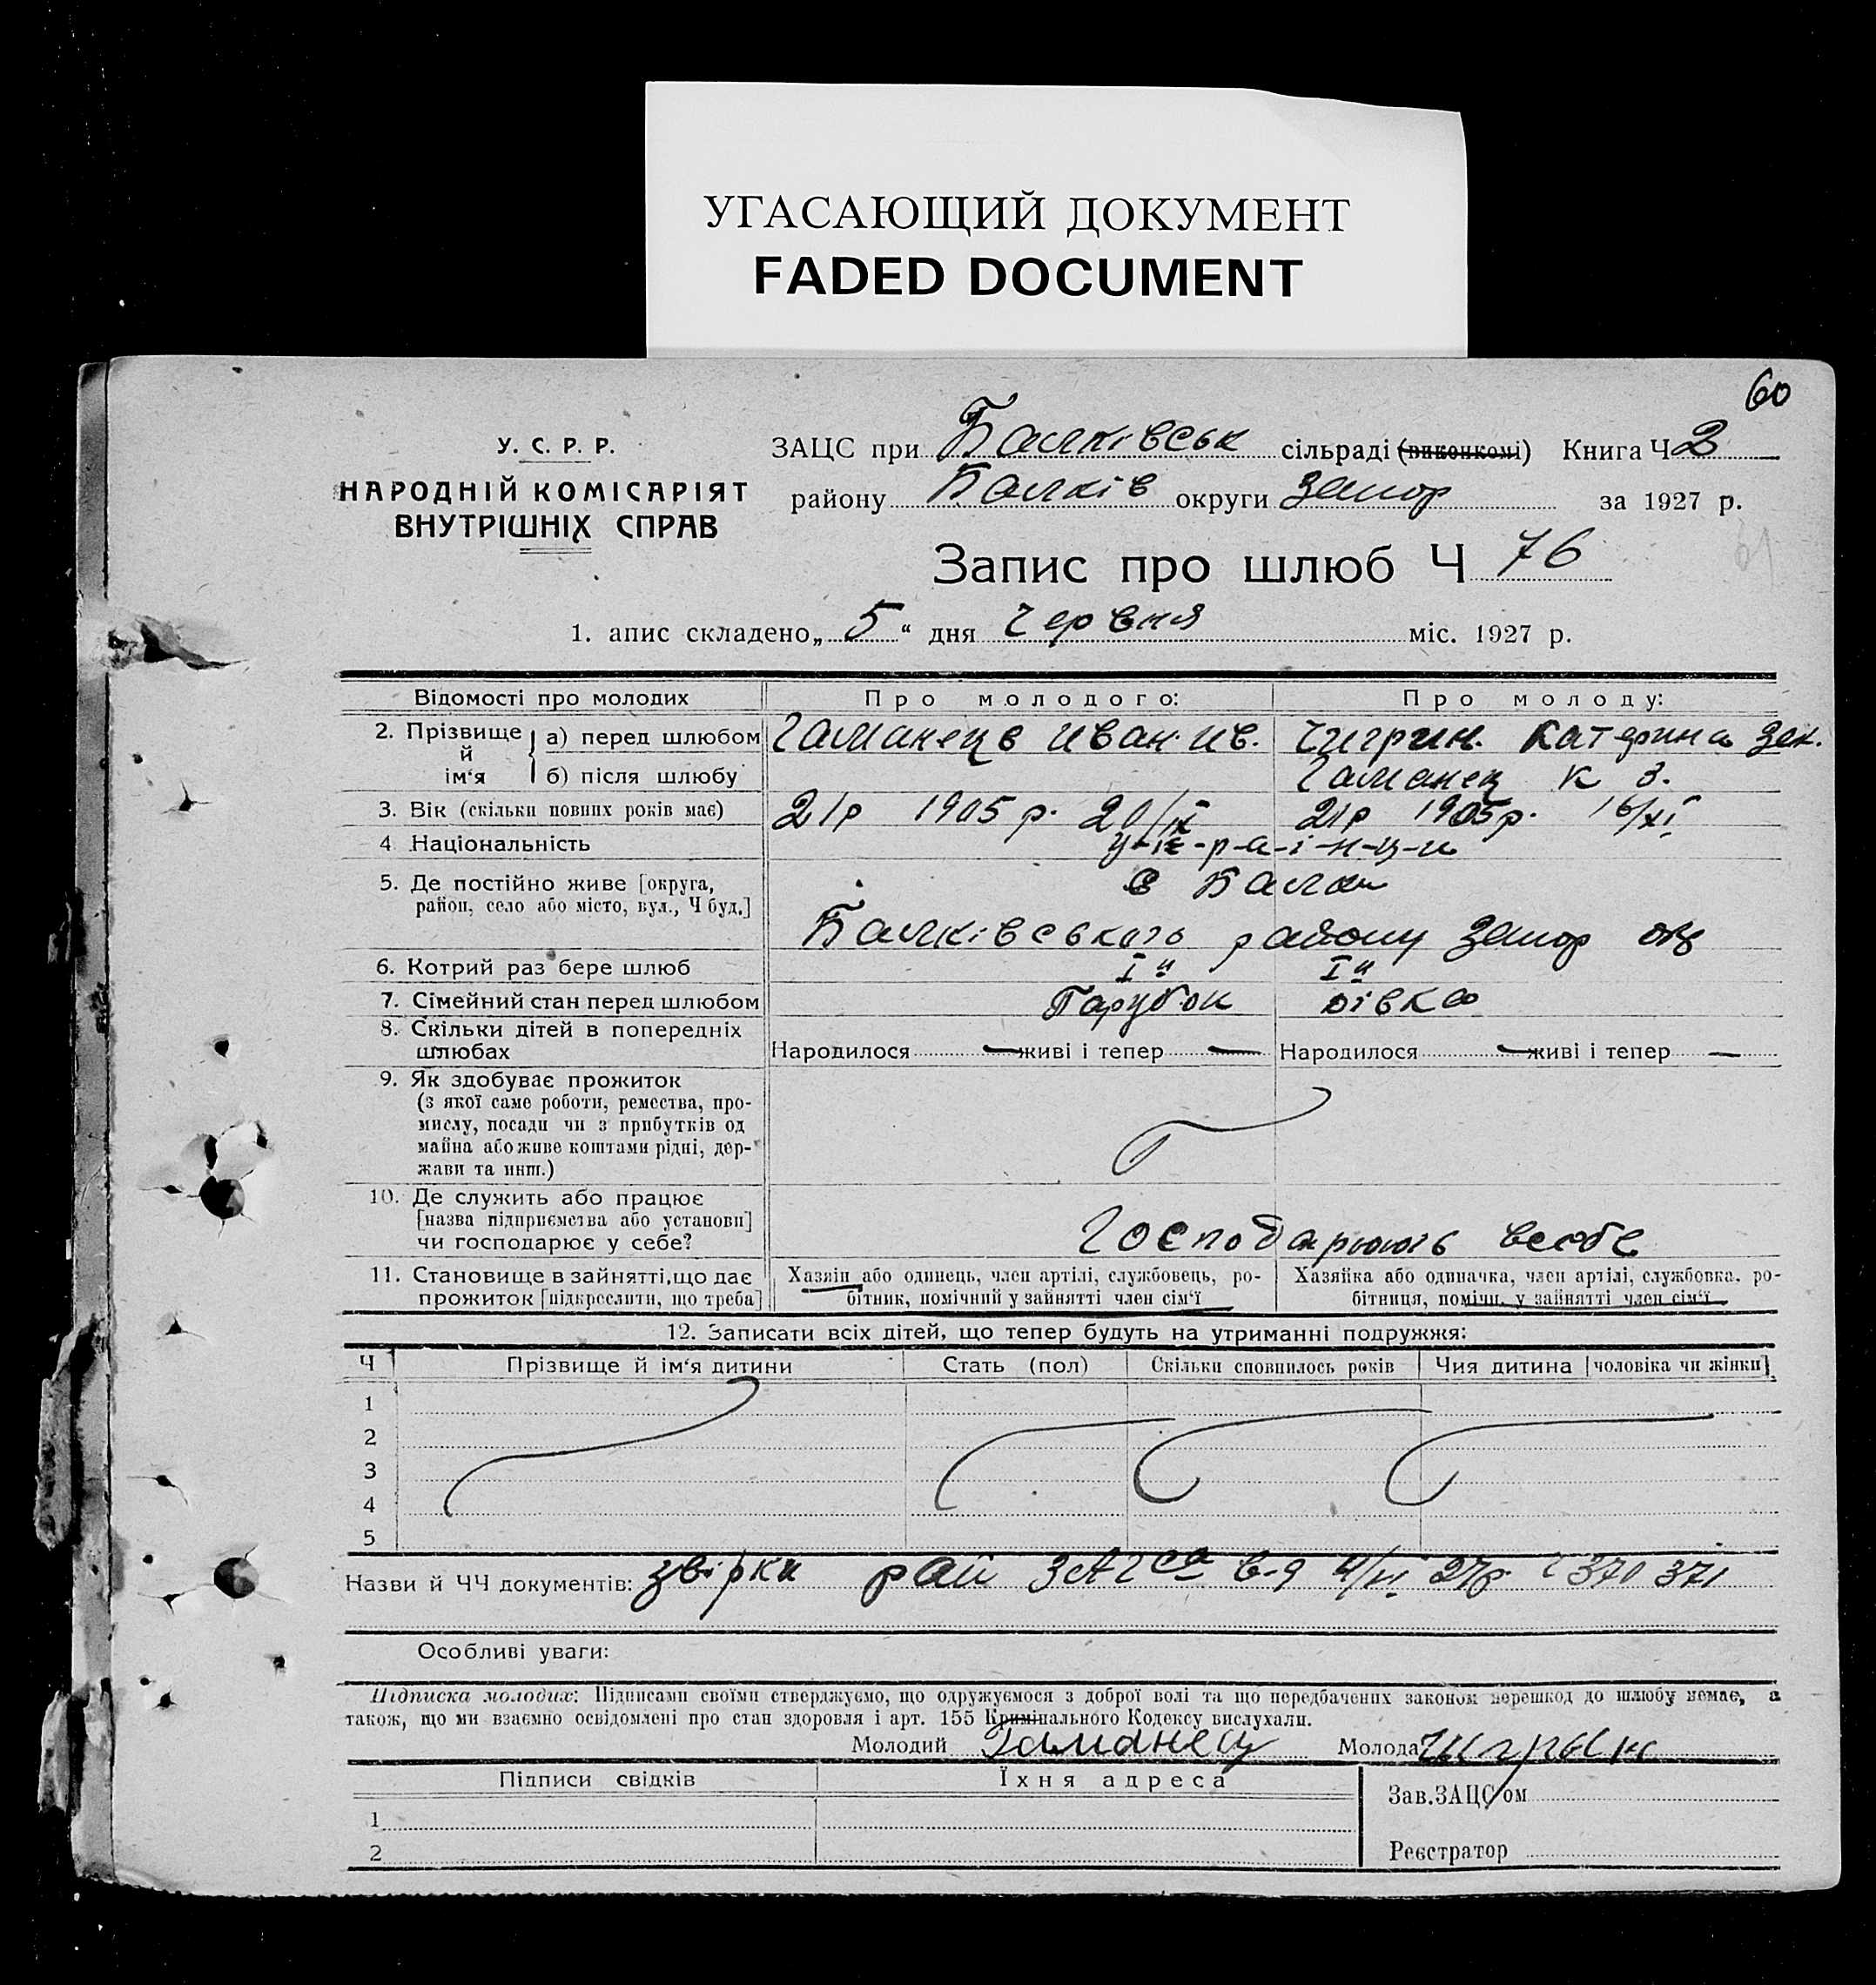 УГАСАЮЩИЙ ДОКУМЕНТ
FADED DOCUMENT
60
У. С. Р. Р.
НАРОДНІЙ КОМІСАРІЯТ
ВНУТРІШНІХ СПРАВ
ЗАЦС при Балківськ сільраді (виконкомі) Книга Ч 2
району Балків округи Запор за 1927 р.
61
Запис про шлюб Ч 76
1. апис складено „ 5 “ дня Червня міс. 1927 р.
Відомості про молодих Про молодого: Про молоду:
2. Прізвище й ім‘я а) перед шлюбом Гаманець Иван Ив. Чигрин Катерина Зах.
б) після шлюбу Гаманец К З.
3. Вік (скільки повних років має) 21р 1905 р. 20/IX 21р 1905р. 16/XI
4 Національність у-к-р-а-ї-н-ц-и
5. Де постійно живе [округа, район, село або місто, вул., Ч буд.] с Балки
Балківського району Запор окр
6. Котрий раз бере шлюб I й I й
7. Сімейний стан перед шлюбом Парубок дівка
8. Скільки дітей в попередніх шлюбах Народилося — живі і тепер — Народилося — живі і тепер —
9. Як здобуває прожиток
(з якої саме роботи, ремества, про-
мислу, посади чи з прибутків од
майна або живе коштами рідні, дер-
жави та инш.)
10. Де служить або працює
[назва підприємства або установи]
чи господарює у себе? Господарюють всебе
11. Становище в зайнятті, що дає Хазяїн або одинець, член артілі, службовець, ро- Хазяйка або одиначка, член артілі, службовка, ро-
прожиток [підкреслити, що треба] бітник, помічний у зайнятті член сім‘ї бітниця, помічн. у зайнятті член сім‘ї
12. Записати всіх дітей, що тепер будуть на утриманні подружжя:
Ч Прізвище й ім‘я дитини Стать (пол) Скільки сповнилось років Чия дитина [чоловіка чи жінки]
1
2
3
4
5
Назви й ЧЧ документів: звірки рай ЗАГСа в-д 4/VI 27р 370 371
Особливі уваги:
Підписка молодих: Підписами своїми стверджуємо, що одружуємося з доброї волі та що передбачених законом перешкод до шлюбу немає, а
також, що ми взаємно освідомлені про стан здоровля і арт. 155 Кримінального Кодексу вислухали.
Молодий Гаманец Молода Чигрын
Підписи свідків Їхня адреса
Зав. ЗАЦСом
1
Реєстратор
2